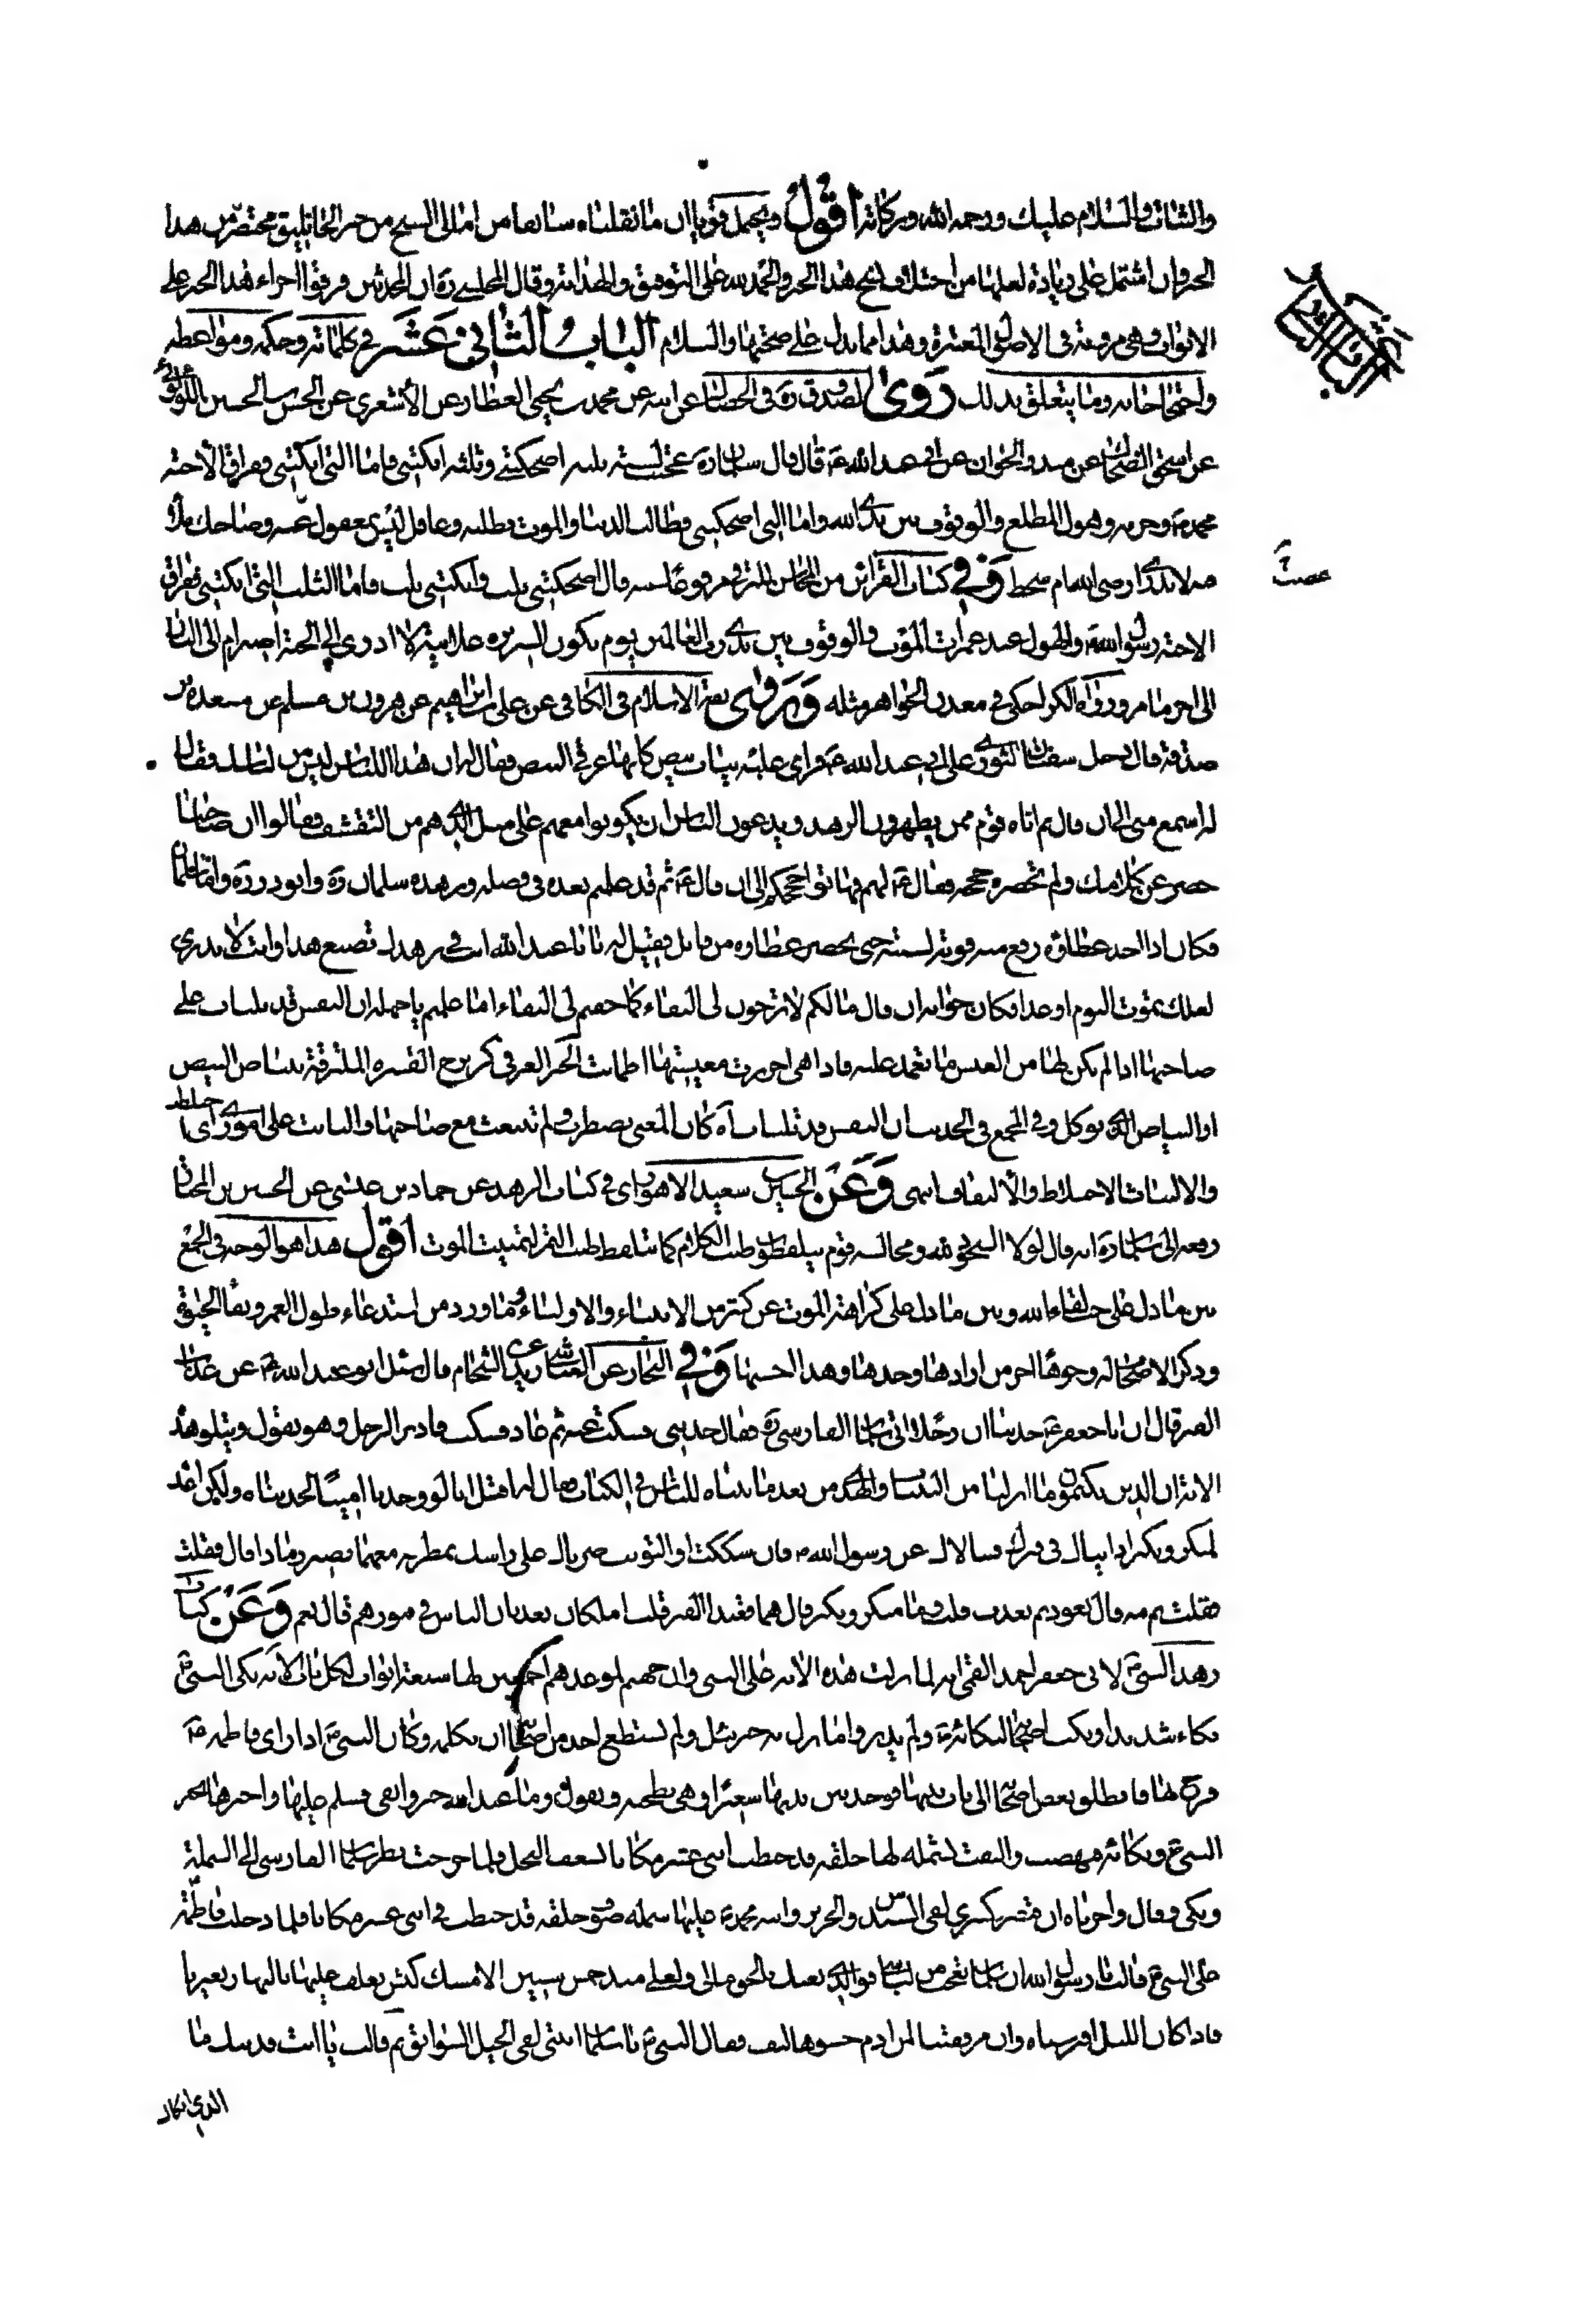 والثبات والسلام عليك ورحمه الله وبركاته اقول ويحتمل قويا ان ما نقلناه سابقا من امالى الشيخ من خبر الجاثليق مختصر من هذا
الخبر وان اشتمل على زيادة لعلها من اختلاف نسخ هذا الخبر والحمد لله على التوفيق والهداية وقال المجلسي ره ان المحدثين فرقوا اجزاء هذا الخبر على
الابواب وهي مروية فى الاصول المعتبرة وهذا مما يدل على صحتها والسلام الباب الثاني عشر في كلماته وحكمه ومواعظه
واحتجاجاته وما يتعلق بذلك روى الصدوق ره فى الخصال عن ابيه عن محمد بن يحيى العطار عن الأشعري عن الحسن بن الحسين اللؤلؤي
عن اسحق الضحاك عن منذر الجوان عن ابي عبد الله ع قال قال سلمان ره عجبت لستة ثلثة اضحكتني وثلثة ابكتني فاما التي ابكتني ففراق الاحبة
محمد ص وحزبه وهول المطلع والوقوف بين يدي الله واما التي اضحكتني فطالب الدنيا والموت يطلبه وغافل ليس بمغفول عنه وضاحك ملأ
فيه لا يدري ارضى الله ام سخط وفي كتاب القرائن من المحاسن للبرقي مرفوعا عنه قال اضحكتني ثلث وابكتني ثلث فاما الثلث التي ابكتني ففراق
الاحبة رسول الله ص والهول عند غمرات الموت والوقوف بين يدي رب العالمين يوم تكون السريرة علانية لا ادري الى الجنة اصير ام الى النار
الى اخر ما مر ورواه الكراجكي في معدن الجواهر مثله وروى ثقة الاسلام فى الكافى عن على بن ابراهيم عن هرون بن مسلم عن مسعدة بن
صدقة قال دخل سفيان الثوري على ابي عبد الله ع فراى عليه ثياب بيض كانها غرقي البيض فقال له ان هذا اللباس ليس من لباسك فقال
له اسمع منى الى ان قال ثم اتاه قوم ممن يظهرون الزهد ويدعون الناس ان يكونوا معهم على مثل الذي هم من التقشف فقالوا ان صاحبنا
حصر عن كلامك ولم تحضره حججه فقال ع لهم فهاتوا حججكم الى ان قال ع ثم قد علمتم بعده في فضله وزهده سلمان ره وابو ذر ره واما سلمان
فكان اذا اخذ عطاؤه رفع منه قوته لسنته حتى يحضر عطاؤه من قابل فقيل له يا ابا عبد الله انت في زهدك تصنع هذا وانت لا تدري
لعلك تموت اليوم او غدا فكان جوابه ان قال ما لكم لا ترجون لى البقاء كما خفتم لى الفناء اما علمتم يا جهلة ان النفس قد تلتاث على
صاحبها اذا لم يكن لها من العيش ما تعتمد عليه فاذا هى احرزت معيشتها اطمانت الخبر الغرقي كزبرج القشرة الملتزقة ببياض البيض
او البياض الذي يوكل وفي المجمع فى الحديث ان النفس قد تلتاث اه كان المعنى تضطرب ولم تنبعث مع صاحبها والتاثت على امورى اى اختلط
والالتياث الاختلاط والالتفاف انتهى وعن الحسين بن سعيد الاهوازي في كتاب الزهد عن حماد بن عيسى عن الحسين بن المختار
رفعه الى سلمان ره انه قال لولا السجود لله ومجالسة قوم يتلقطون طيب الكلام كما يتلقط طيب التمر لتمنيت الموت اقول هذا هو الوجه فى الجمع
بين ما دل على حب لقاء الله وبين ما دل على كراهة الموت عن كثير من الانبياء والاولياء وما ورد من استدعاء طول العمر وبقاء الحيوة
وذكر الاصحاب له وجوها اخر من ارادها وجدها وهذا احسنها وفي البحار عن العياشي عن زيد الشحام قال سئل ابو عبد الله ع عن عذاب
القبر قال ان ابا جعفر ع حدثنا ان رجلا اتى سلمان الفارسي ره فقال حدثني فسكت عنه ثم عاد فسكت فادبر الرجل وهو يقول ويتلو هذه
الاية ان الذين يكتمون ما انزلنا من البينات والهدى من بعد ما بيناه للناس فى الكتاب فقال له اقبل انا لو وجدنا امينا لحدثناه ولكن اعد
لمنكر ونكير اذا اتياك فى القبر فسالاك عن رسول الله ص فان شككت او التويت ضرباك على راسك بمطرقة معهما تصير رمادا قال فقلت
فقلت ثم مه قال تعود ثم تعذب قلت وما منكر ونكير قال هما قعيدا القبر قلت املكان يعذبان الناس فى قبورهم قال نعم وعن كتاب
زهد النبي ص لابى جعفر احمد القمي انه لما نزلت هذه الاية على النبي وان جهنم لموعدهم اجمعين لها سبعة ابواب لكل باب الاية بكى النبي ص
بكاء شديدا وبكت اصحابه لبكائه ص ولم يدروا ما نزل به جبرئيل ولم يستطع احد من اصحابه ان يكلمه وكان النبي ص اذا راى فاطمة ع
فرح لها فانطلق بعض اصحابه الى باب بيتها فوجد بين يديها شعيرا وهى تطحنه وتقول وما عند الله خير وابقى فسلم عليها واخبرها بخبر
النبي ص وبكائه فنهضت والتفت بشملة لها خلقة قد خيطت اثنى عشر مكانا بسعف النخل فلما خرجت نظر سلمان الفارسي الى الشملة
وبكى وقال واحزناه ان قيصر وكسرى لفى السندس والحرير وابنة محمد ص عليها شملة صوف خلقة قد خيطت فى اثنى عشر مكانا فلما دخلت فاطمة
على النبي ص قالت يا رسول الله ان سلمان تعجب من لباسى فوالذي بعثك بالحق ما لى ولعلى منذ خمس سنين الا مسك كبش نعلف عليها بالنهار بعيرنا
فاذا كان الليل افترشناه وان مرفقتنا لمن ادم حشوها ليف فقال النبي ص يا سلمان ان ابنتى لفى الخيل السوابق ثم قالت يا ابت فديتك ما
الذي ابكاك
الباب الثاني عشر